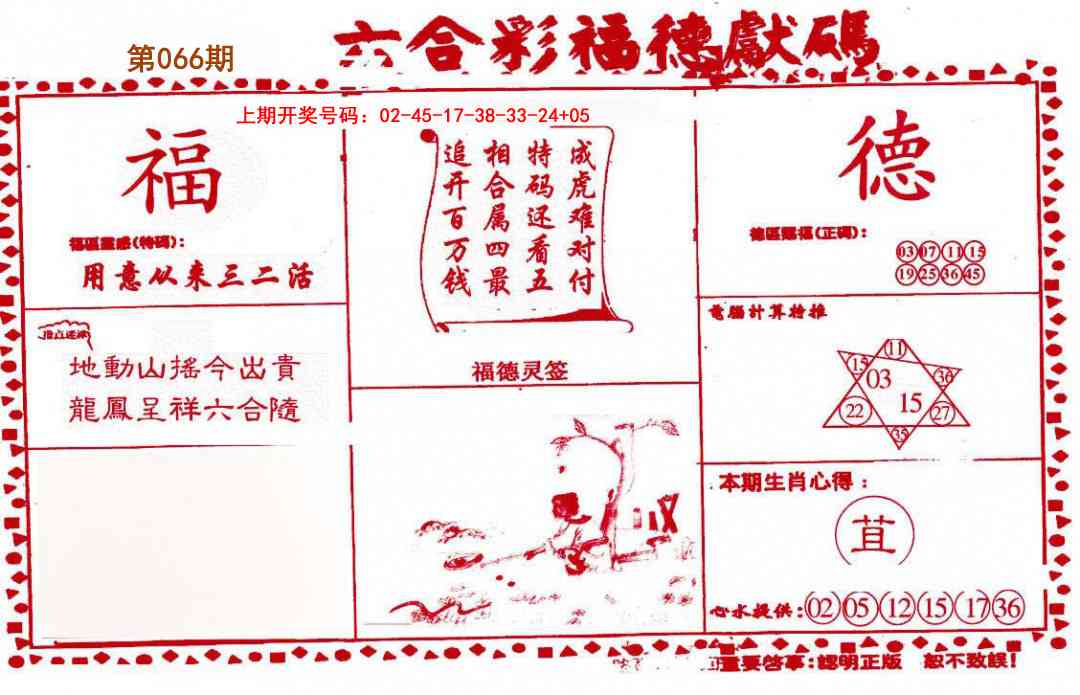 第066期
六合彩福德獻碼
上期开奖号码：02-45-17-38-33-24+05
福
福區靈感(特碼):
用意从来三二活
地動山搖今出貴
龍鳳呈祥六合隨
成虎难对付
特码还看五
相合属四最
追开百万钱
福德灵签
德
德區賜福(正碼):
03 07 11 15
19 25 36 45
電腦計算特推
11
15
36
03
15
22
27
35
本期生肖心得:
苴
心水提供:02 05 12 15 17 36
重要啓事:認明正版 恕不致誤!